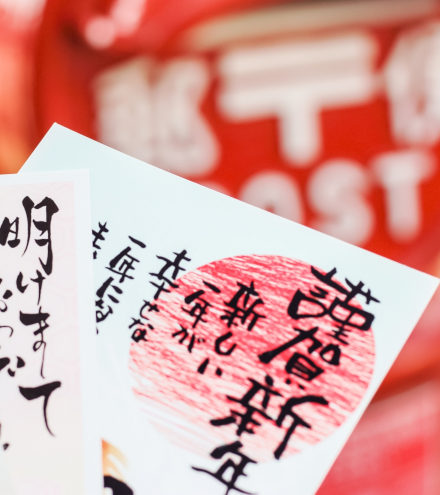 郵〒便
POST
謹賀新年
新しい
一年が
幸せな
一年になる
明けまして